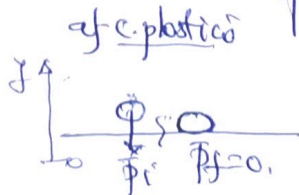 c. plastico
y
0
Pi
Pf=0.